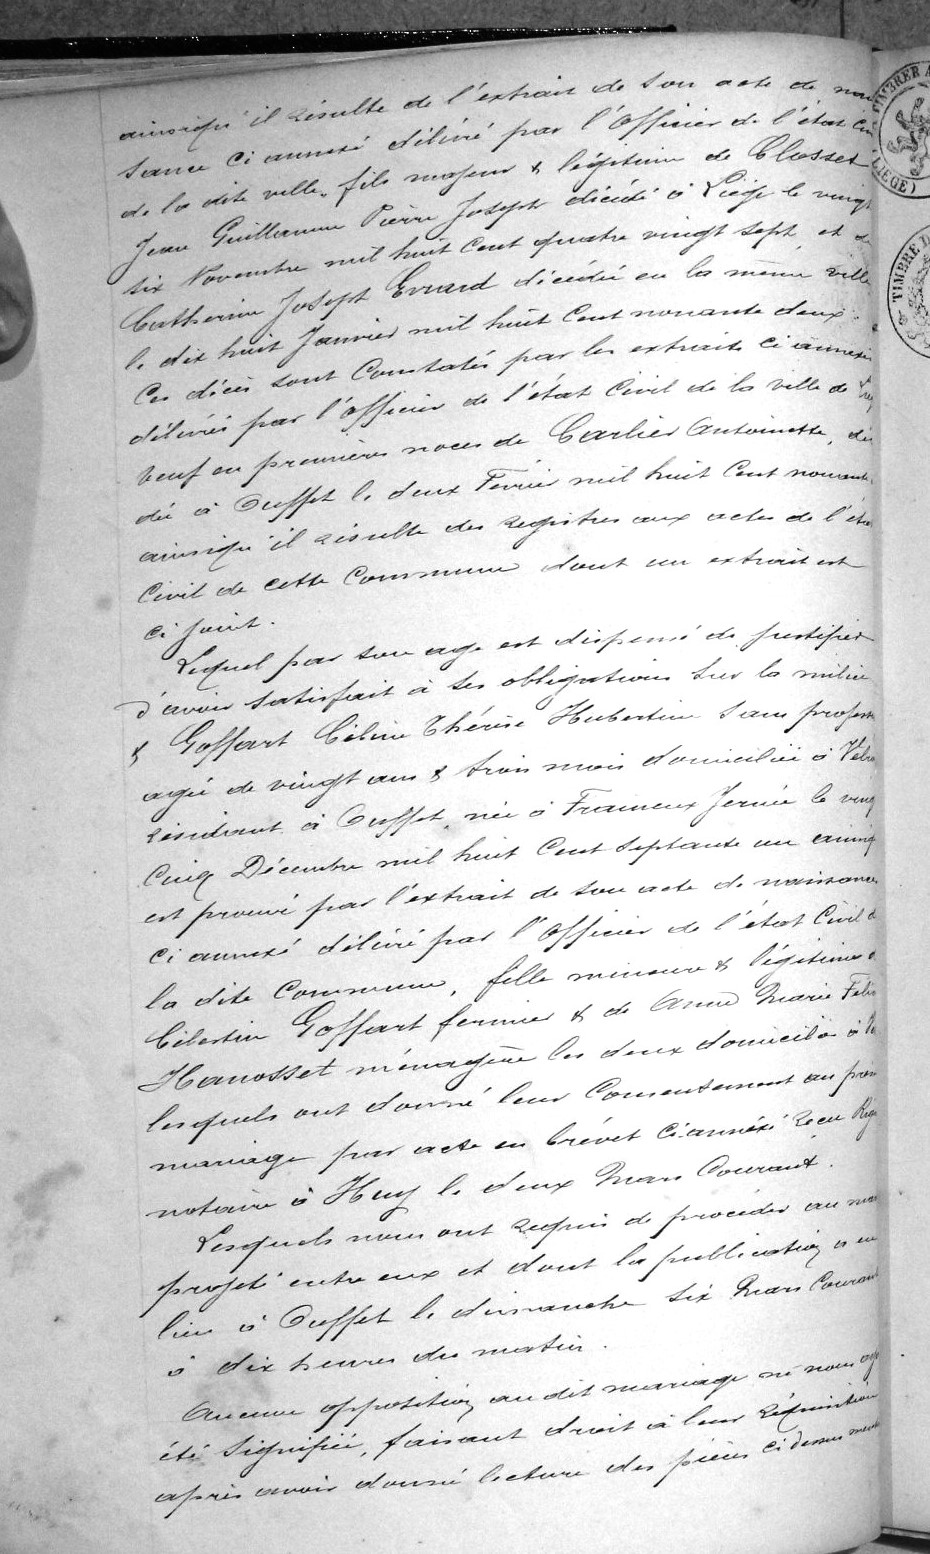 ainsiqu'il résulte de l'extrait de son acte de nais
sance ci annexé délivré par l'Officier de l'état Civ
de la dite ville, fils majeur & légitime de Closset
Jean Guillaume Pierre Joseph décédé à Liége le vingt
six Novembre mil huit Cent quatre vingt sept, et de
Catherine Joseph Evrard décédée en la même ville
le dix huit Janvier mil huit Cent nonante deux.
Ces décès sont Constatés par les extraits ci annexés
délivrés par l'officier de l'état Civil de la ville de
veuf en premières noces de Carlier Antoinette, décé
dée à Ouffet le deux Février mil huit Cent nonante
ainsiqu'il résulte des registres aux actes de l'état
Civil de cette Commune dont un extrait est
ci joint.
Lequel par son age est dispensé de justifier
d'avoir satisfait à ses obligations sur la milice
& Goffart Céline Thérèse Hubertine sans profess
agée de vingt ans & trois mois domiciliée à
résidant à Ouffet, née à Fraineux Jernée le ving
Cinq Décembre mil huit Cent septante un ainsiq
est prouvé par l'extrait de son acte de naissance
ci annexé délivré par l'Officier de l'état Civil d
la dite Commune, fille mineure & légitime d
Célestin Goffart fermier & de Anne Marie
Hanosset ménagère les deux domiciliés à
lesquels ont donné leur Consentement au prés
mariage par acte en brévet ci annexé recu
notaire à Huy le deux Mars Courant.
Lesquels nous ont requis de procéder au mar
projeté entre eux et dont la publication a eu
lieu à Ouffet le dimanche six Mars Courant
à dix heures du matin.
Aucune opposition au dit mariage ne nous
été signifiée, faisant droit à leur réquisition
après avoir donné lecture des pièces ci dessus
TIMBRER A
(LIÉGE)
TIMBRE D